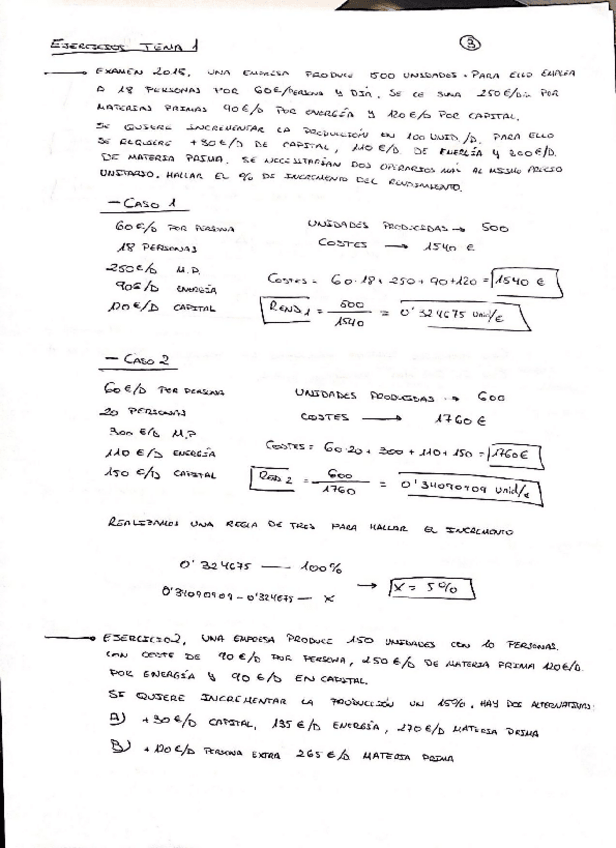 EJERCICIOS TEMA 1
3
EXAMEN 2018, UNA EMPRESA PRODUCE 500 UNIDADES. PARA ELLO EMPLEA
A 18 PERSONAS POR 60€/PERSONA Y DÍA. SE LE SUMA 250€/DÍA POR
MATERIAS PRIMAS 90€/D POR ENERGÍA Y 120€/D POR CAPITAL.
SE QUIERE INCREMENTAR LA PRODUCCIÓN EN 100 UNID/D. PARA ELLO
SE REQUIERE +30€/D DE CAPITAL, 110€/D. DE ENERGÍA Y 300€/D.
DE MATERIA PRIMA. SE NECESITARÍAN DOS OPERARIOS MÁS AL MISMO PRECIO
UNITARIO. HALLAR EL % DE INCREMENTO DEL RENDIMIENTO.
- CASO 1
60€/D POR PERSONA UNIDADES PRODUCIDAS → 500
18 PERSONAS COSTES → 1540 €
250€/D M.P.
90€/D ENERGÍA COSTES = 60·18 + 250 + 90 + 120 = 1540 €
120€/D CAPITAL REND1 = 500/1540 = 0'324675 Unid/€
- CASO 2
60€/D POR PERSONA UNIDADES PRODUCIDAS → 600
20 PERSONAS COSTES → 1760 €
300€/D M.P
110€/D ENERGÍA COSTES = 60·20 + 300 + 110 + 150 = 1760€
150€/D CAPITAL REND2 = 600/1760 = 0'34090909 Unid/€
REALIZAMOS UNA REGLA DE TRES PARA HALLAR EL INCREMENTO
0'324675 — 100%
0'34090909 - 0'324675 — X → X = 5%
EJERCICIO 2, UNA EMPRESA PRODUCE 150 UNIDADES CON 10 PERSONAS.
CON COSTE DE 90€/D POR PERSONA, 250€/D DE MATERIA PRIMA 120€/D.
POR ENERGÍA Y 90€/D EN CAPITAL.
SE QUIERE INCREMENTAR LA PRODUCCIÓN UN 15%. HAY DOS ALTERNATIVAS:
A) +30€/D CAPITAL, 135€/D ENERGÍA, 270€/D MATERIA PRIMA
B) +120€/D PERSONA EXTRA 265€/D MATERIA PRIMA